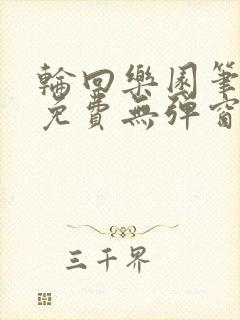 輪回樂園筆
免費無彈窗
三千界